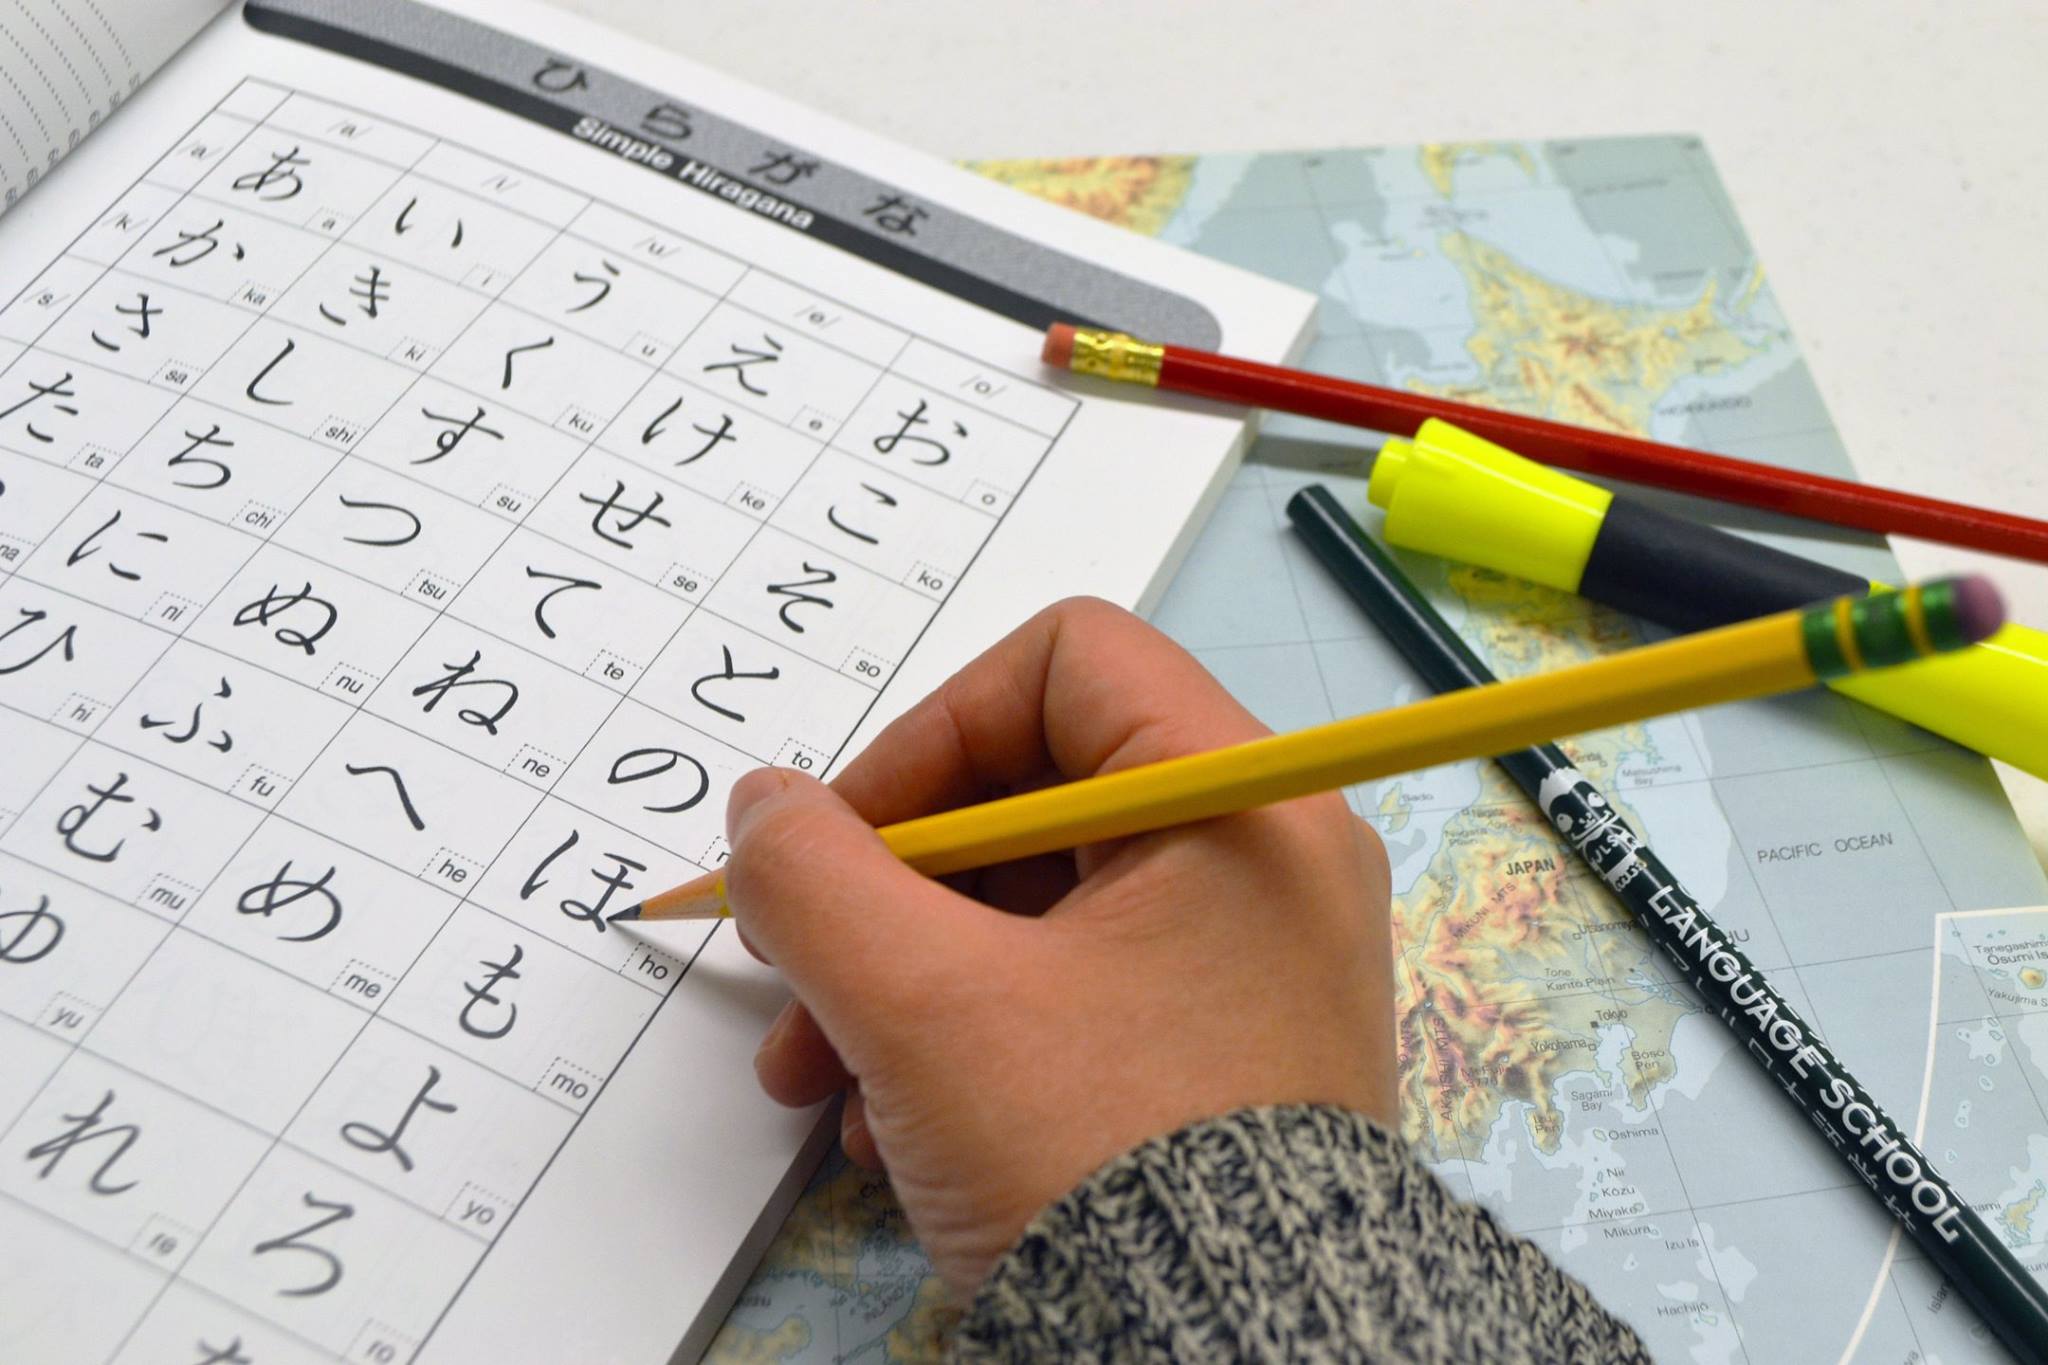 ひらがな
Simple Hiragana
/a/ /i/ /u/ /e/ /o/
/a/ あ a い i う u え e お o
/k/ か ka き ki く ku け ke こ ko
/s/ さ sa し shi す su せ se そ so
た ta ち chi つ tsu て te と to
na に ni ぬ nu ね ne の
ひ hi ふ fu へ he ほ ho
む mu め me も mo
ゆ yu よ yo
れ re ろ ro
LANGUAGE SCHOOL
HOKKAIDO
PACIFIC OCEAN
JAPAN
Sado
Niigata
Matsushima
Bay
Tone
Kanto Plain
Tokyo
Yokohama
Boso
Pen
Sagami
Bay
Oshima
Nii
Kozu
Miyake
Mikura
Izu Is
Hachijo
Tanegashima
Osumi Is
Yakujima